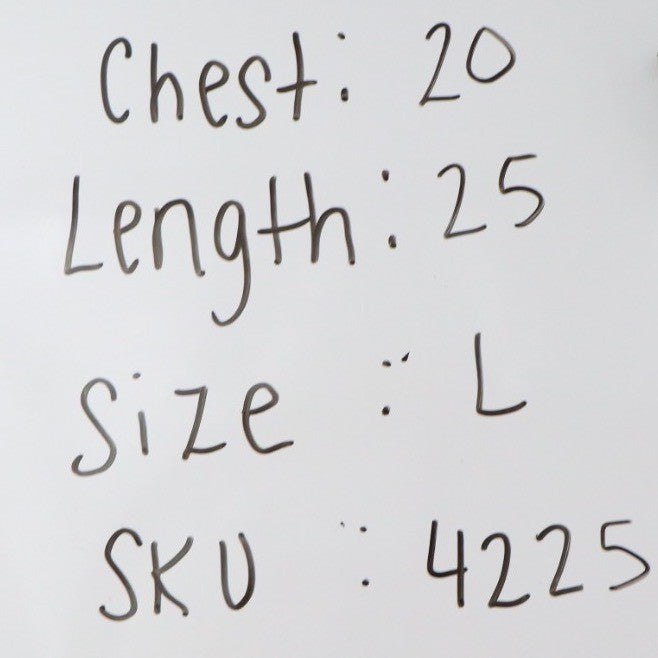 Chest: 20
Length: 25
Size : L
SKU : 4225